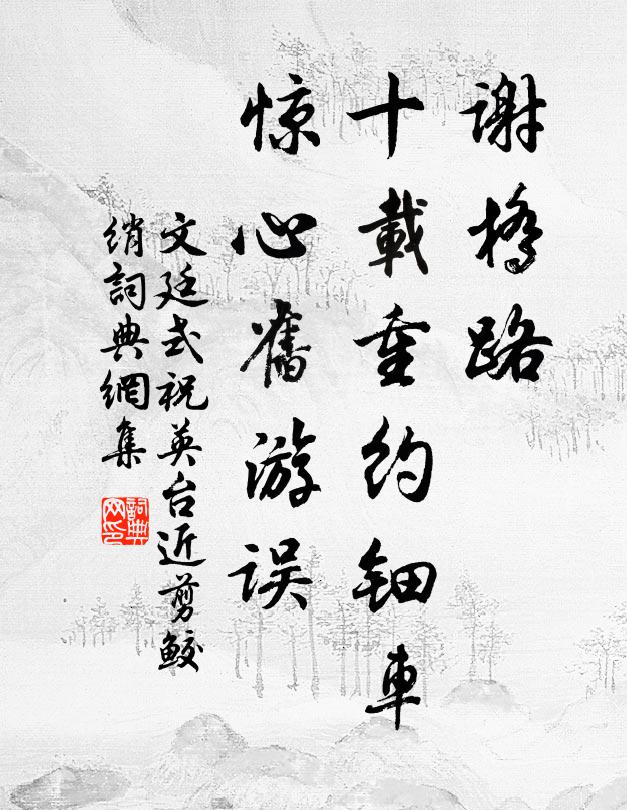 谢桥路
十載重约钿車
惊心舊游误
文廷式祝英台近剪鲛
绡詞典網集
詞典网印